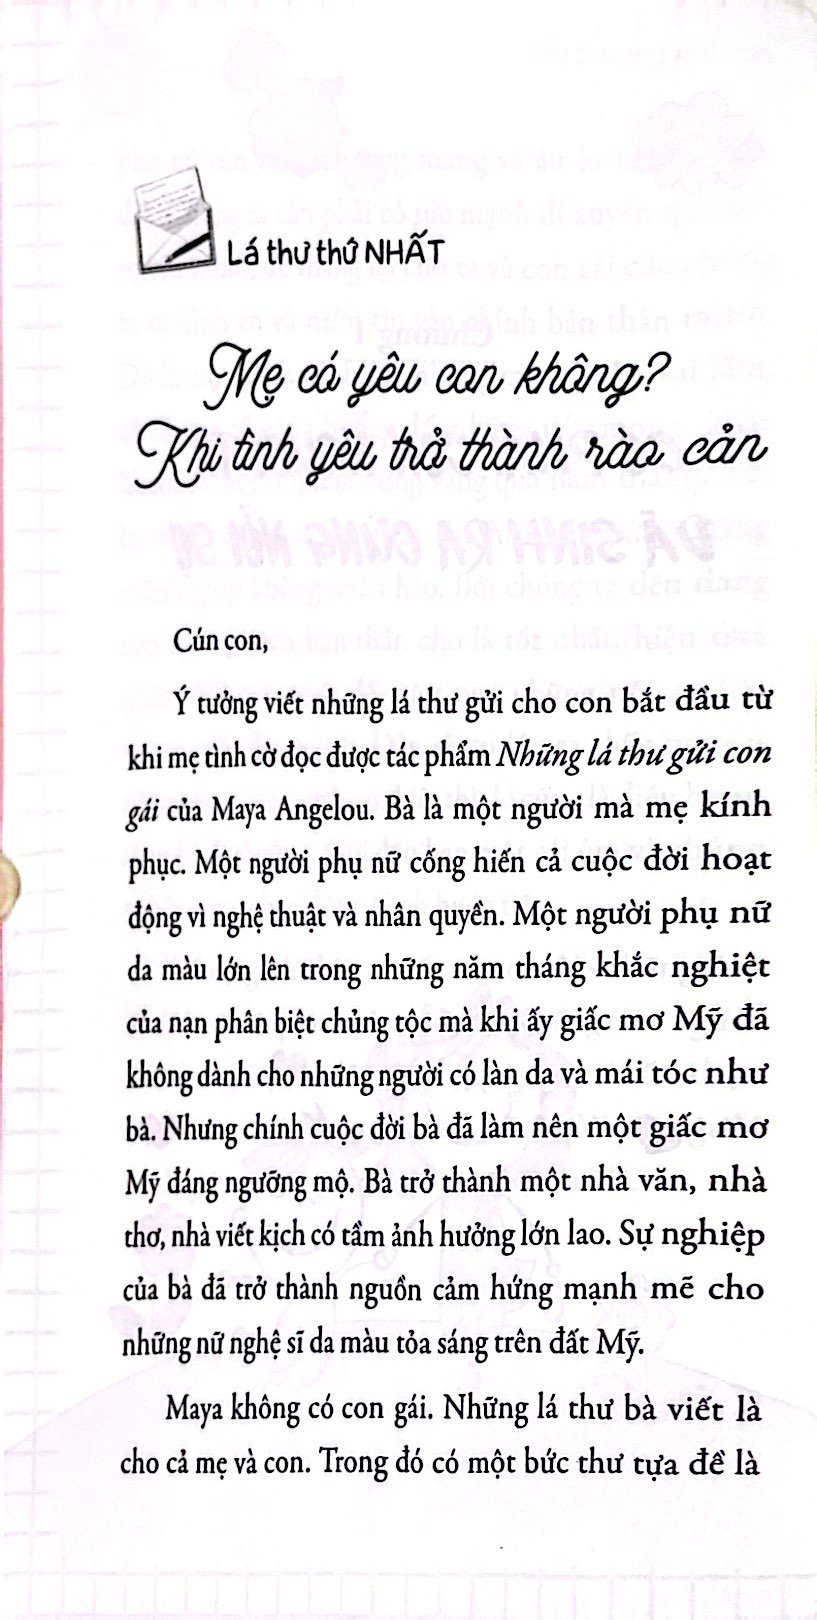 Lá thư thứ NHẤT
Mẹ có yêu con không?
Khi tình yêu trở thành rào cản
Cún con,
Ý tưởng viết những lá thư gửi cho con bắt đầu từ
khi mẹ tình cờ đọc được tác phẩm Những lá thư gửi con
gái của Maya Angelou. Bà là một người mà mẹ kính
phục. Một người phụ nữ cống hiến cả cuộc đời hoạt
động vì nghệ thuật và nhân quyền. Một người phụ nữ
da màu lớn lên trong những năm tháng khắc nghiệt
của nạn phân biệt chủng tộc mà khi ấy giấc mơ Mỹ đã
không dành cho những người có làn da và mái tóc như
bà. Nhưng chính cuộc đời bà đã làm nên một giấc mơ
Mỹ đáng ngưỡng mộ. Bà trở thành một nhà văn, nhà
thơ, nhà viết kịch có tầm ảnh hưởng lớn lao. Sự nghiệp
của bà đã trở thành nguồn cảm hứng mạnh mẽ cho
những nữ nghệ sĩ da màu tỏa sáng trên đất Mỹ.
Maya không có con gái. Những lá thư bà viết là
cho cả mẹ và con. Trong đó có một bức thư tựa đề là